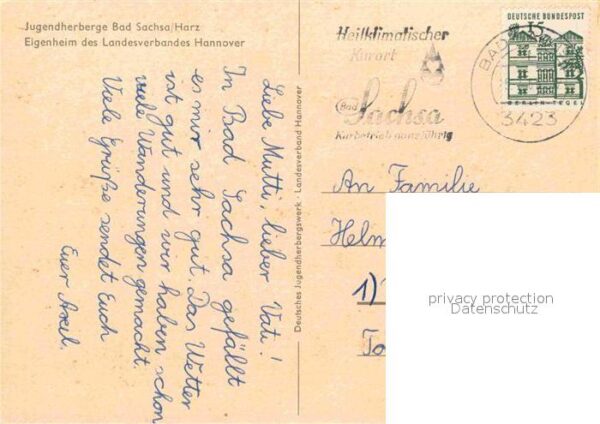 Jugendherberge Bad Sachsa/Harz
Eigenheim des Landesverbandes Hannover
Liebe Mutti, lieber Vati!
In Bad Sachsa gefällt
es mir sehr gut. Das Wetter
ist gut und wir haben schon
viele Wanderungen gemacht.
Viele Grüße sendet Euch
Euer Axel.
Deutsches Jugendherbergswerk · Landesverband Hannover
Heilklimatischer
Kurort
Bad
Sachsa
Kurbetrieb ganzjährig
BAD
3423
DEUTSCHE BUNDESPOST
15
BERLIN-TEGEL
An Familie
Helm
1)
privacy protection
Datenschutz